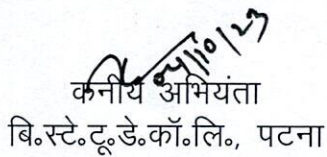 04/10/23
कनीय अभियंता
बि॰स्टे॰टू॰डे॰कॉ॰लि॰, पटना